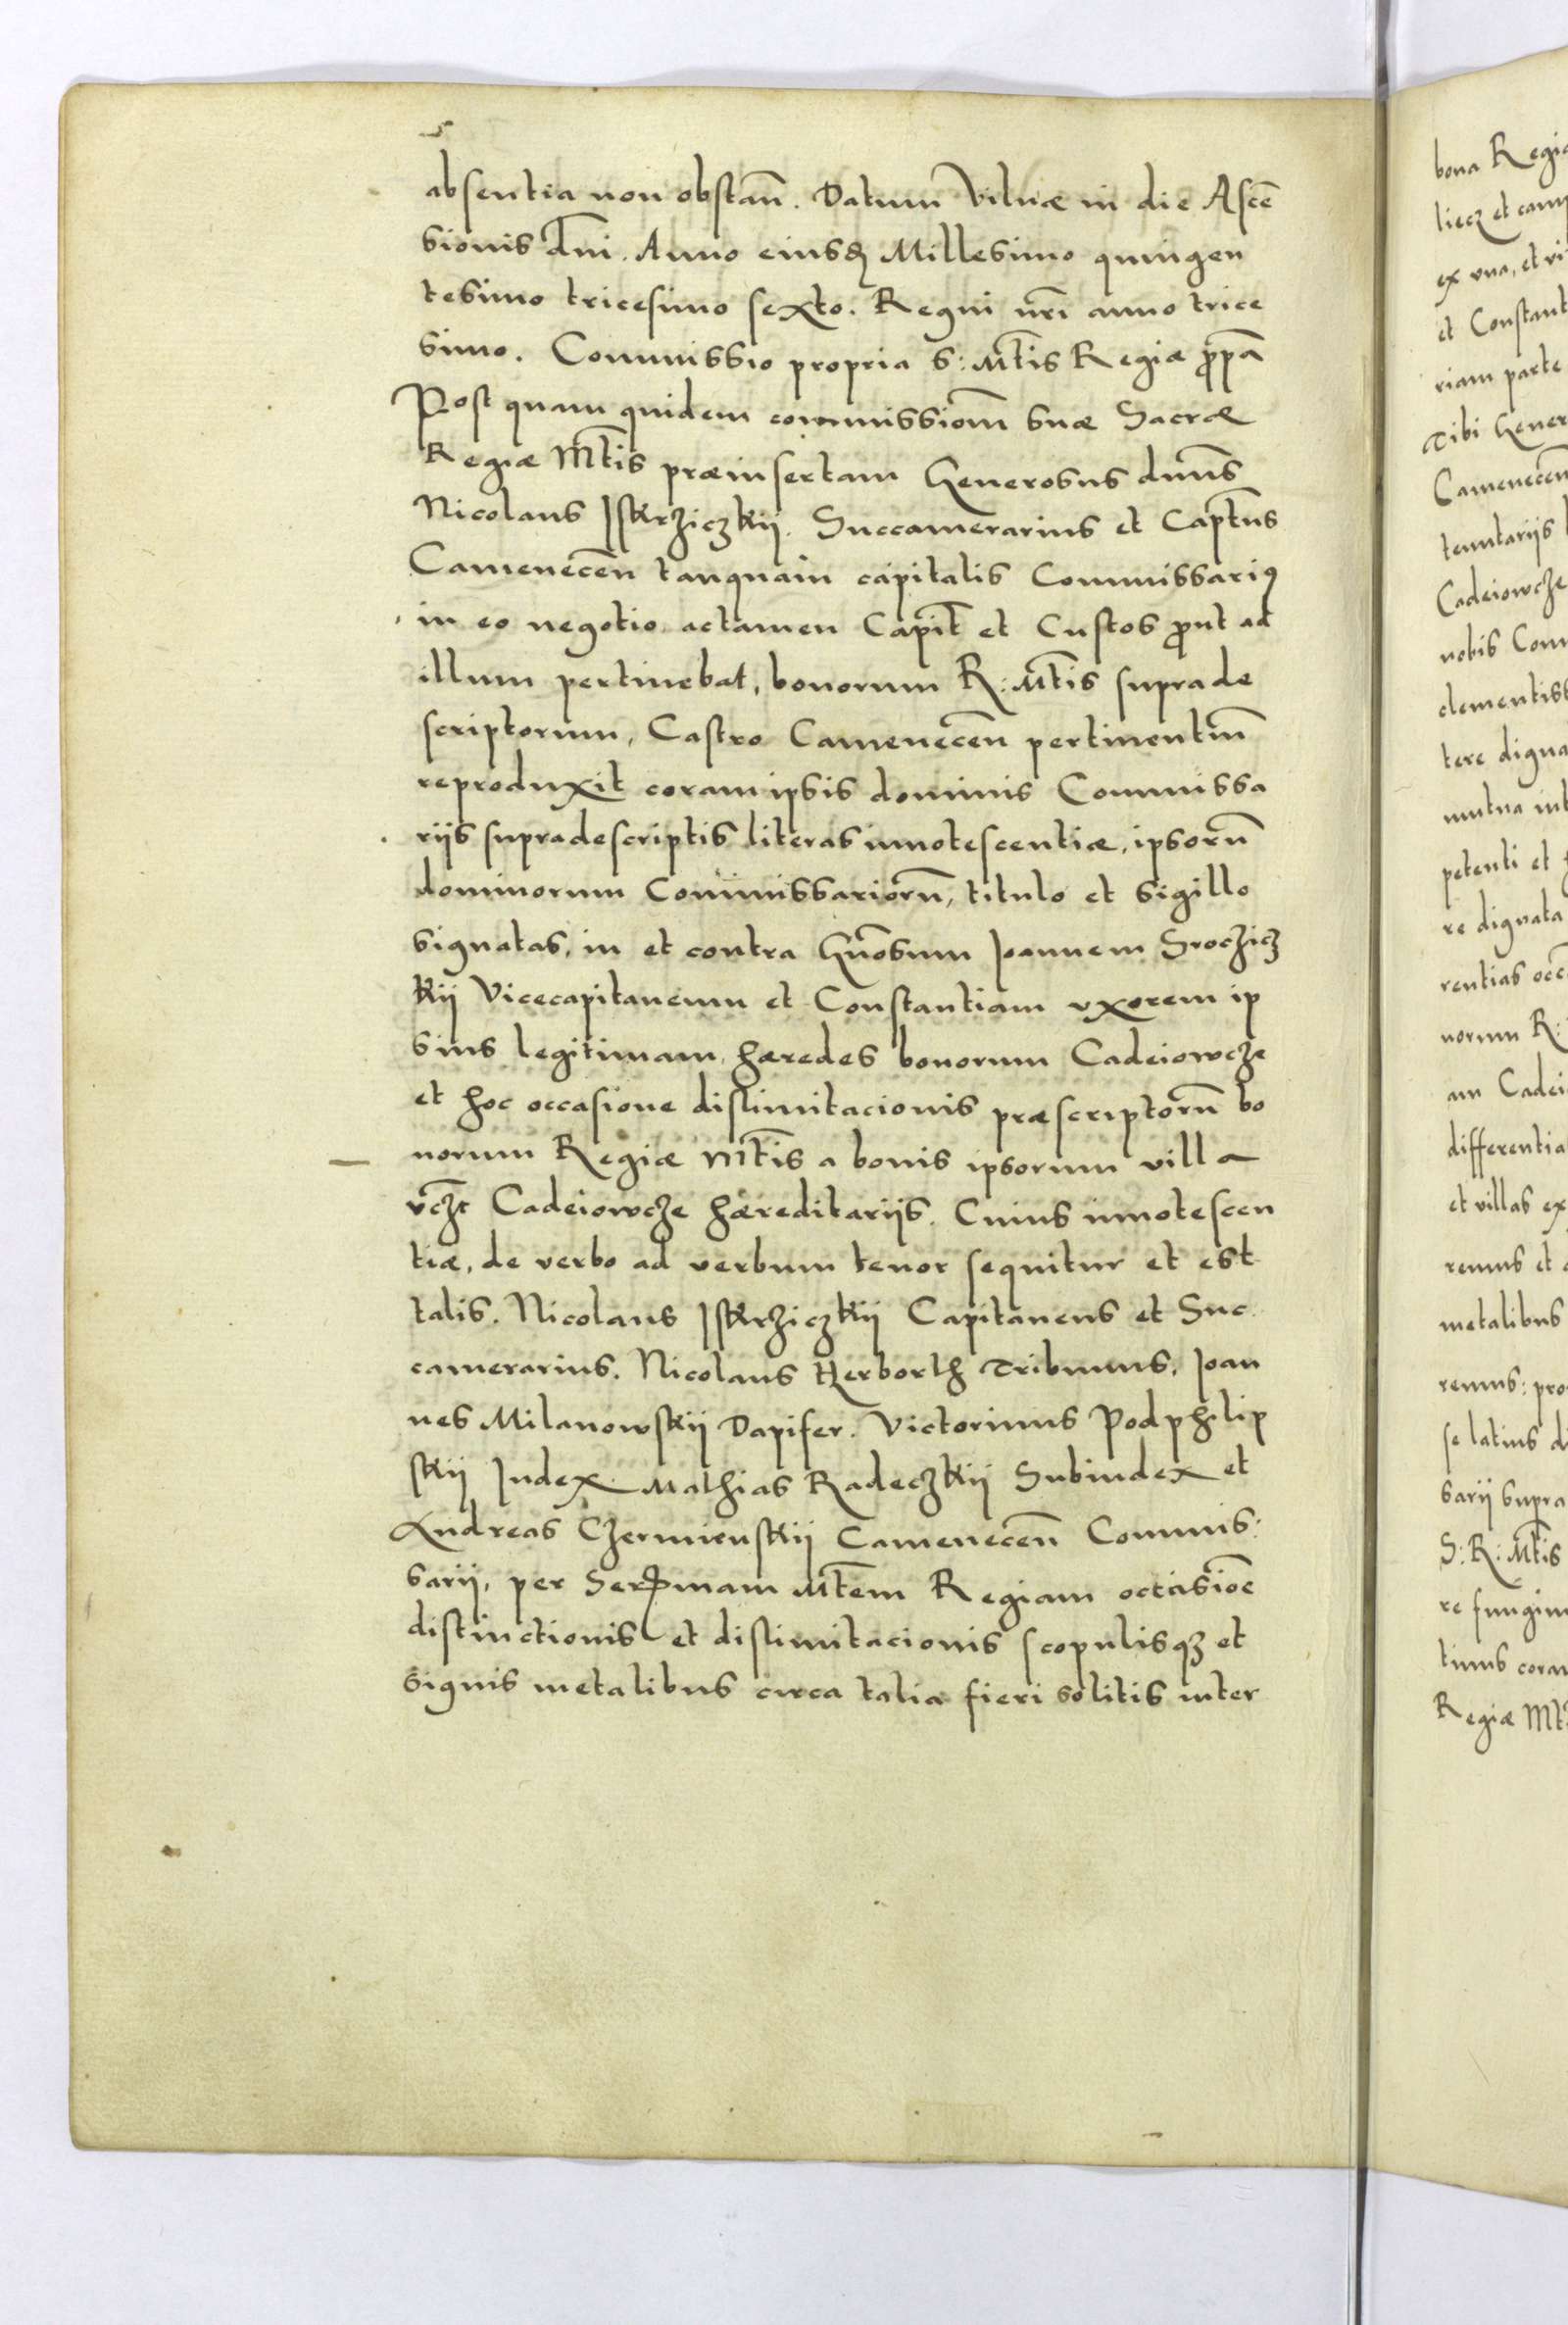 absentia non obstan̄. Datum Vilnæ in die Ascē
sionis Dn̄i. Anno eiusdꝫ Millesimo quingen
tesimo tricesimo sexto. Regni nrī anno trice
simo. Commissio propria S: Mt̄is Regiæ
Post quam quidem commissiom̄ suæ Sacræ
Regiæ Mt̄is præinsertam Generosus dnūs
Nicolaus Iskrziczkij. Succamerarius et Capt̄us
Camenecen̄ tanquam capitalis Commissariꝰ
in eo negotio actamen Capit̄ et Custos ꝓut ad
illum pertinebat, bonorum R: Mt̄is suprade
scriptorum, Castro Camenecen̄ pertinentiū
reproduxit coram ipsis dominis Commissa
riis supradescriptis literas innotescentiæ, ipsorū
dominorum Commissariorū, titulo et sigillo
signatas, in et contra Gnōsum Joannem Srocziczkij
kij Vicecapitaneum et Constantiam vxorem ip
sius legitimam, hæredes bonorum Cadeiowcze
et hoc occasione dislimitacionis præscriptorū bo
norum Regiæ Mt̄is a bonis ipsorum villa
vcz̄ Cadeiowcze hæreditariis. Cuius innotescen
tiæ, de verbo ad verbum tenor sequitur et est
talis. Nicolaus Iskrziczkij Capitaneus et Suc
camerarius. Nicolaus Herborth Tribunus, Joan
nes Milanowskij Dapifer. Victorinus Podphilip
skij Iudex. Mathias Radeczkij Subiudex et
Andreas Czermienskij Camenecen̄ Commis:
sarij, per Serꝫmam Mt̄em Regiam occasiōe
distinctionis et dislimitacionis scopulisqꝫ et
signis metalibus circa talia fieri solitis inter
bona Regiæ
liecz et camp
ex vna, et vi
et Constant
riam parte
Tibi Gener
Camenecen̄
tenutariis
Cadeiowcze
nobis Com
clementiss
tere digna
mutua int
petenti et
re dignata
rentias occ
norum R:
am Cadei
differentia
et villas ex
remus et
metalibus
remus: pro
se latius di
sarij supra
S: R: Mt̄is
re fungim
timus coram
Regiæ Mt̄